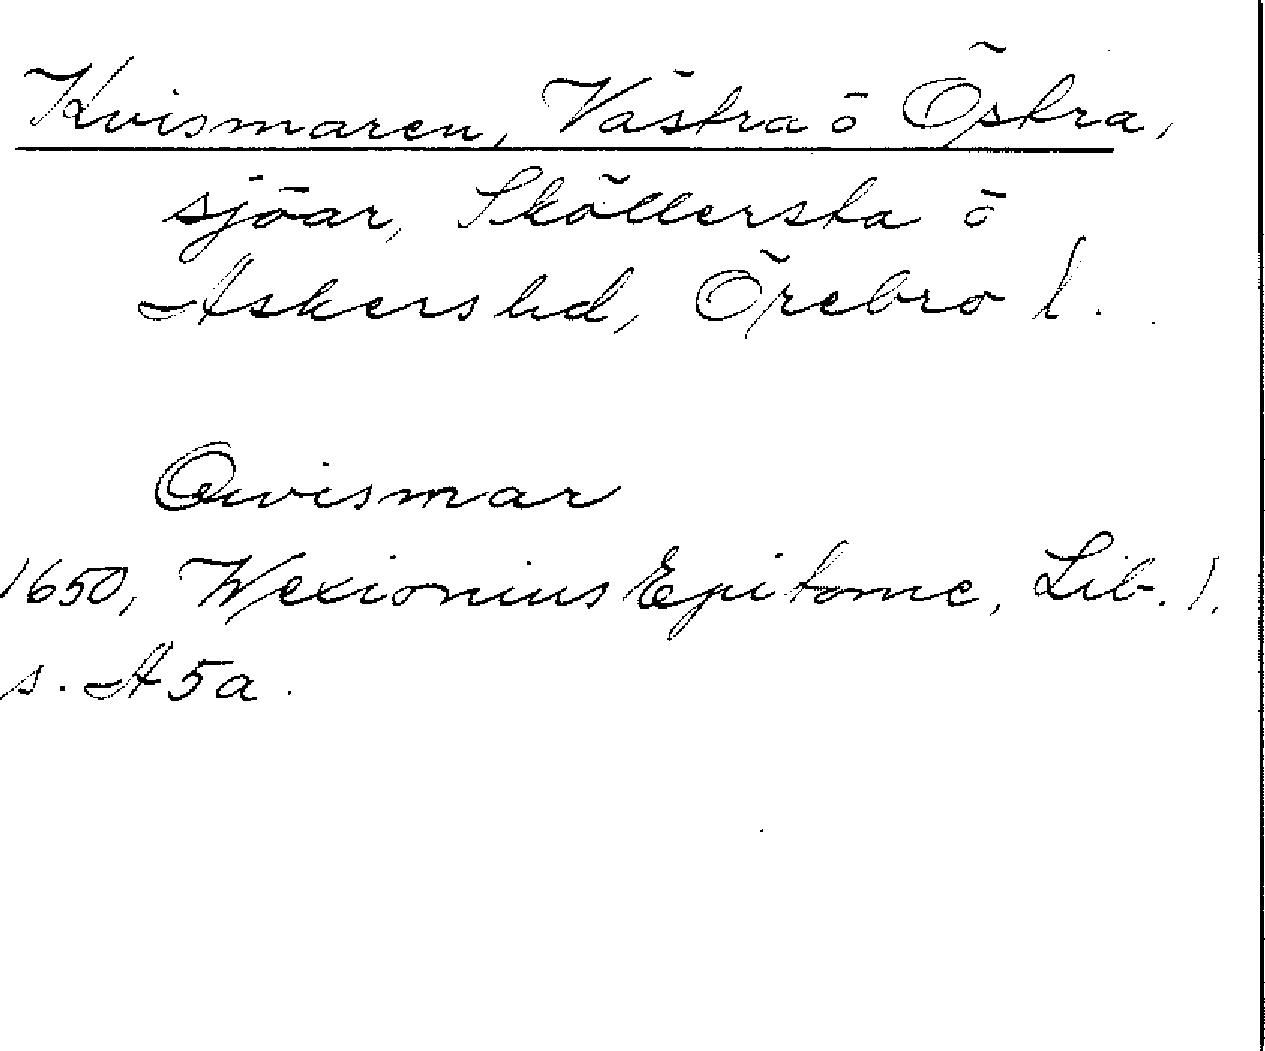 Kvismaren, Västra ö Östra,
sjöar, Sköllersta ö
Askers hd, Örebro l.
Qwismar
1650, Wexionius Epitome, Lib. 1.
s. A5a.